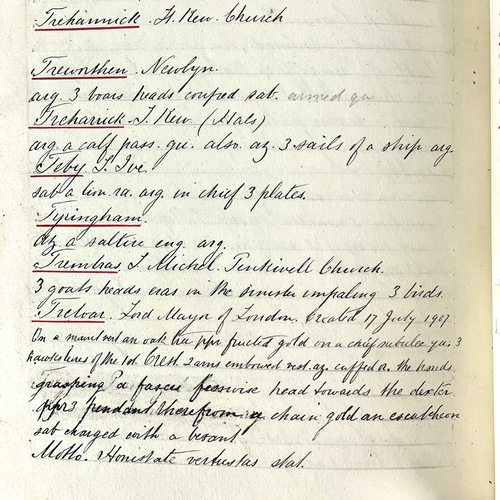 Trehannick. St. Kew. Church
Treworthen. Newlyn.
arg. 3 boars heads couped sab. armed gu
Treharrick. St. Kew. (Hals)
arg. a calf pass. gu. also. az. 3 sails of a ship arg.
Teby. St. Ive.
sab a lion. ra. arg. in chief 3 plates.
Tyringham.
az. a saltire eng. arg.
Trembras. St. Michel. Penkivell Church.
3 goats heads eras in the sinister impaling 3 birds.
Treloar. Lord Mayor of London. Created 17 July 1907.
On a mount vert an oak tree ppr fructed gold on a chief nebulee gu. 3
hawks lures of the 1st. Crest. 2 arms embowed vest. az cuffed or. the hands
grasping a fasces fesswise head towards the dexter
ppr & pendant therefrom by chain gold an escutcheon
sab charged with a bezant
Motto. Honestate vetustas stat.